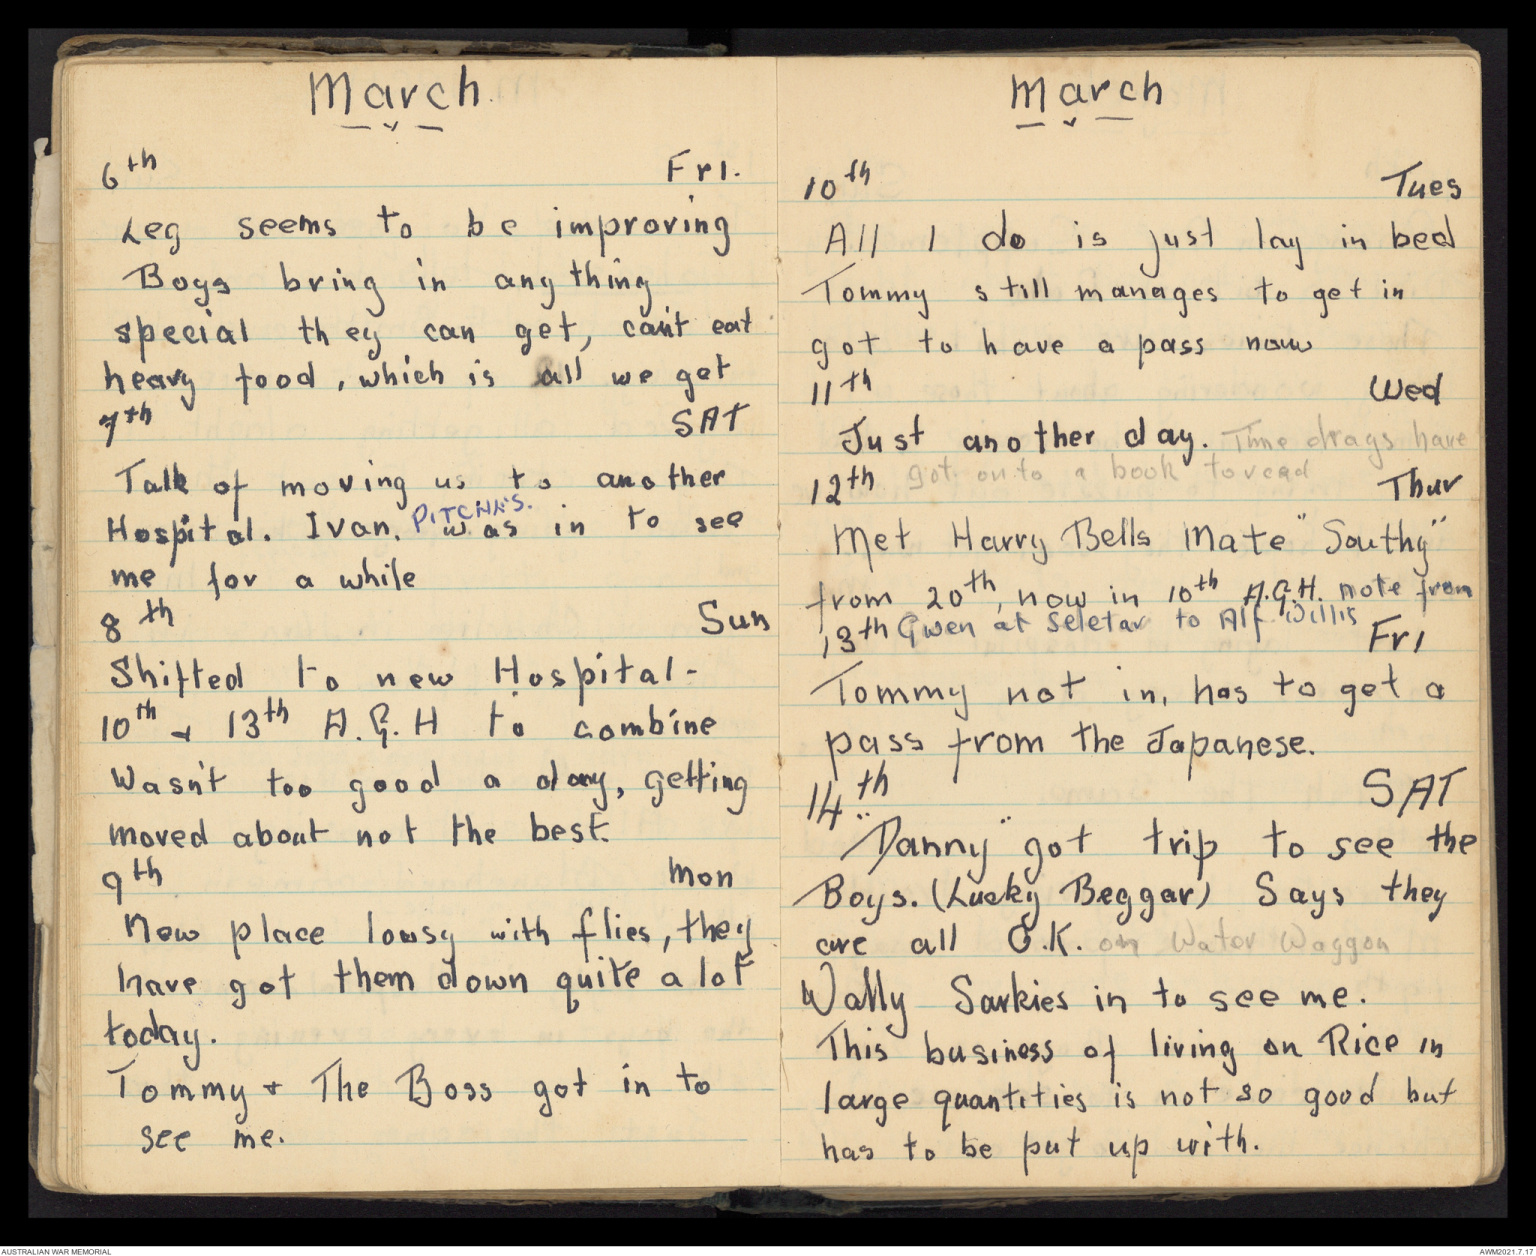 March
6th Fri.
Leg seems to be improving
Boys bring in anything
special they can get, can't eat
heavy food, which is all we get
7th SAT
Talk of moving us to another
Hospital. Ivan. PITCHKS. was in to see
me for a while
8th Sun
Shifted to new Hospital-
10th + 13th A.G.H to combine
Wasn't too good a day, getting
moved about not the best.
9th Mon
New place lousy with flies, they
have got them down quite a lot
today.
Tommy + The Boss got in to
see me.
March
10th Tues
All I do is just lay in bed
Tommy still manages to get in
got to have a pass now
11th Wed
Just another day. Time drags have
got onto a book to read
12th Thur
Met Harry Bells Mate "Southy"
from 20th, now in 10th A.G.H. note from
Gwen at Seletar to Alf Willis
13th Fri
Tommy not in, has to get a
pass from the Japanese.
14th SAT
"Danny" got trip to see the
Boys. (Lucky Beggar) Says they
are all O.K. on Water Waggon
Wally Sarkies in to see me.
This business of living on Rice in
large quantities is not so good but
has to be put up with.
AUSTRALIAN WAR MEMORIAL AWM2021.7.17